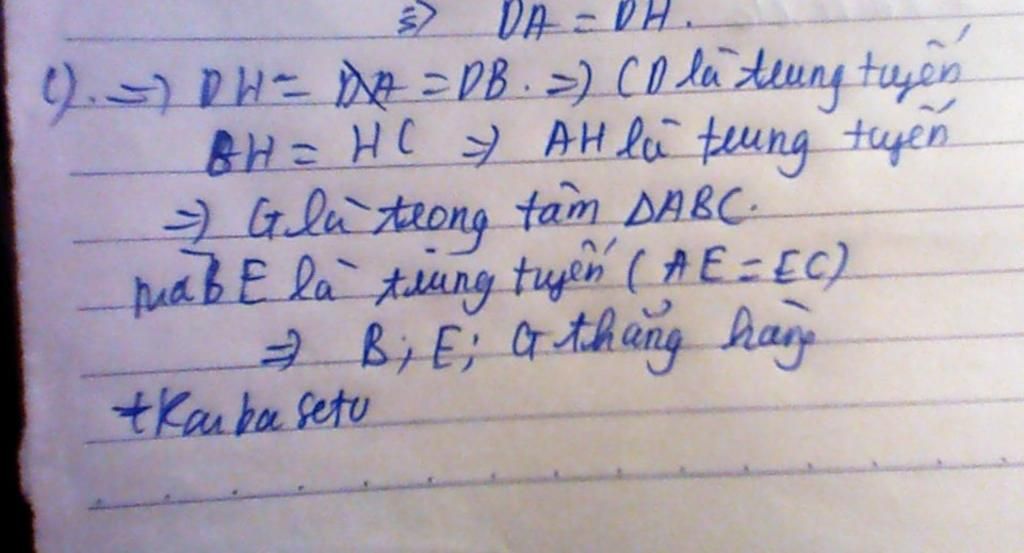 => DA = DH.
c). => DH = DA = DB. => CD là trung tuyến
BH = HC => AH là trung tuyến
=> G là trọng tâm ΔABC.
mà BE là trung tuyến (AE = EC)
=> B; E; G thẳng hàng
+Kaiba seto